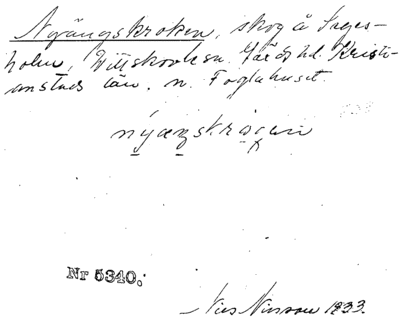 Nyängskroken, skog å Seges-
holm, Vittskövle sn. Gärds hd. Kristi-
anstads län. n. Foglahuset.
nýæŋskrɑ̣gɛn
Nr 5340.
Nils Nilsson 1933.